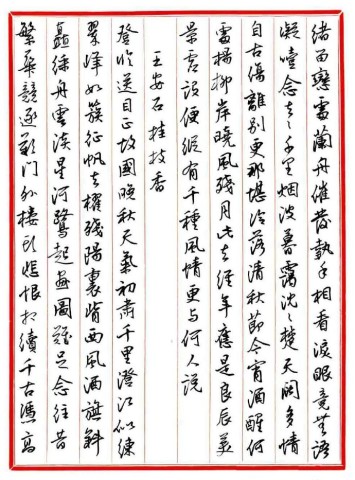 緒留戀處蘭舟催發執手相看淚眼竟無語
凝噎念去去千里烟波暮靄沈沈楚天闊多情
自古傷離別更那堪冷落清秋節今宵酒醒何
處楊柳岸曉風殘月此去經年應是良辰美
景虛設便縱有千種風情更与何人說
王安石 桂枝香
登临送目正故國晚秋天氣初肅千里澄江似練
翠峰如簇征帆去棹殘陽裏背西風酒旗斜
矗綵舟雲淡星河鷺起畫圖難足念往昔
繁華競逐歎門外樓頭悲恨相續千古憑高